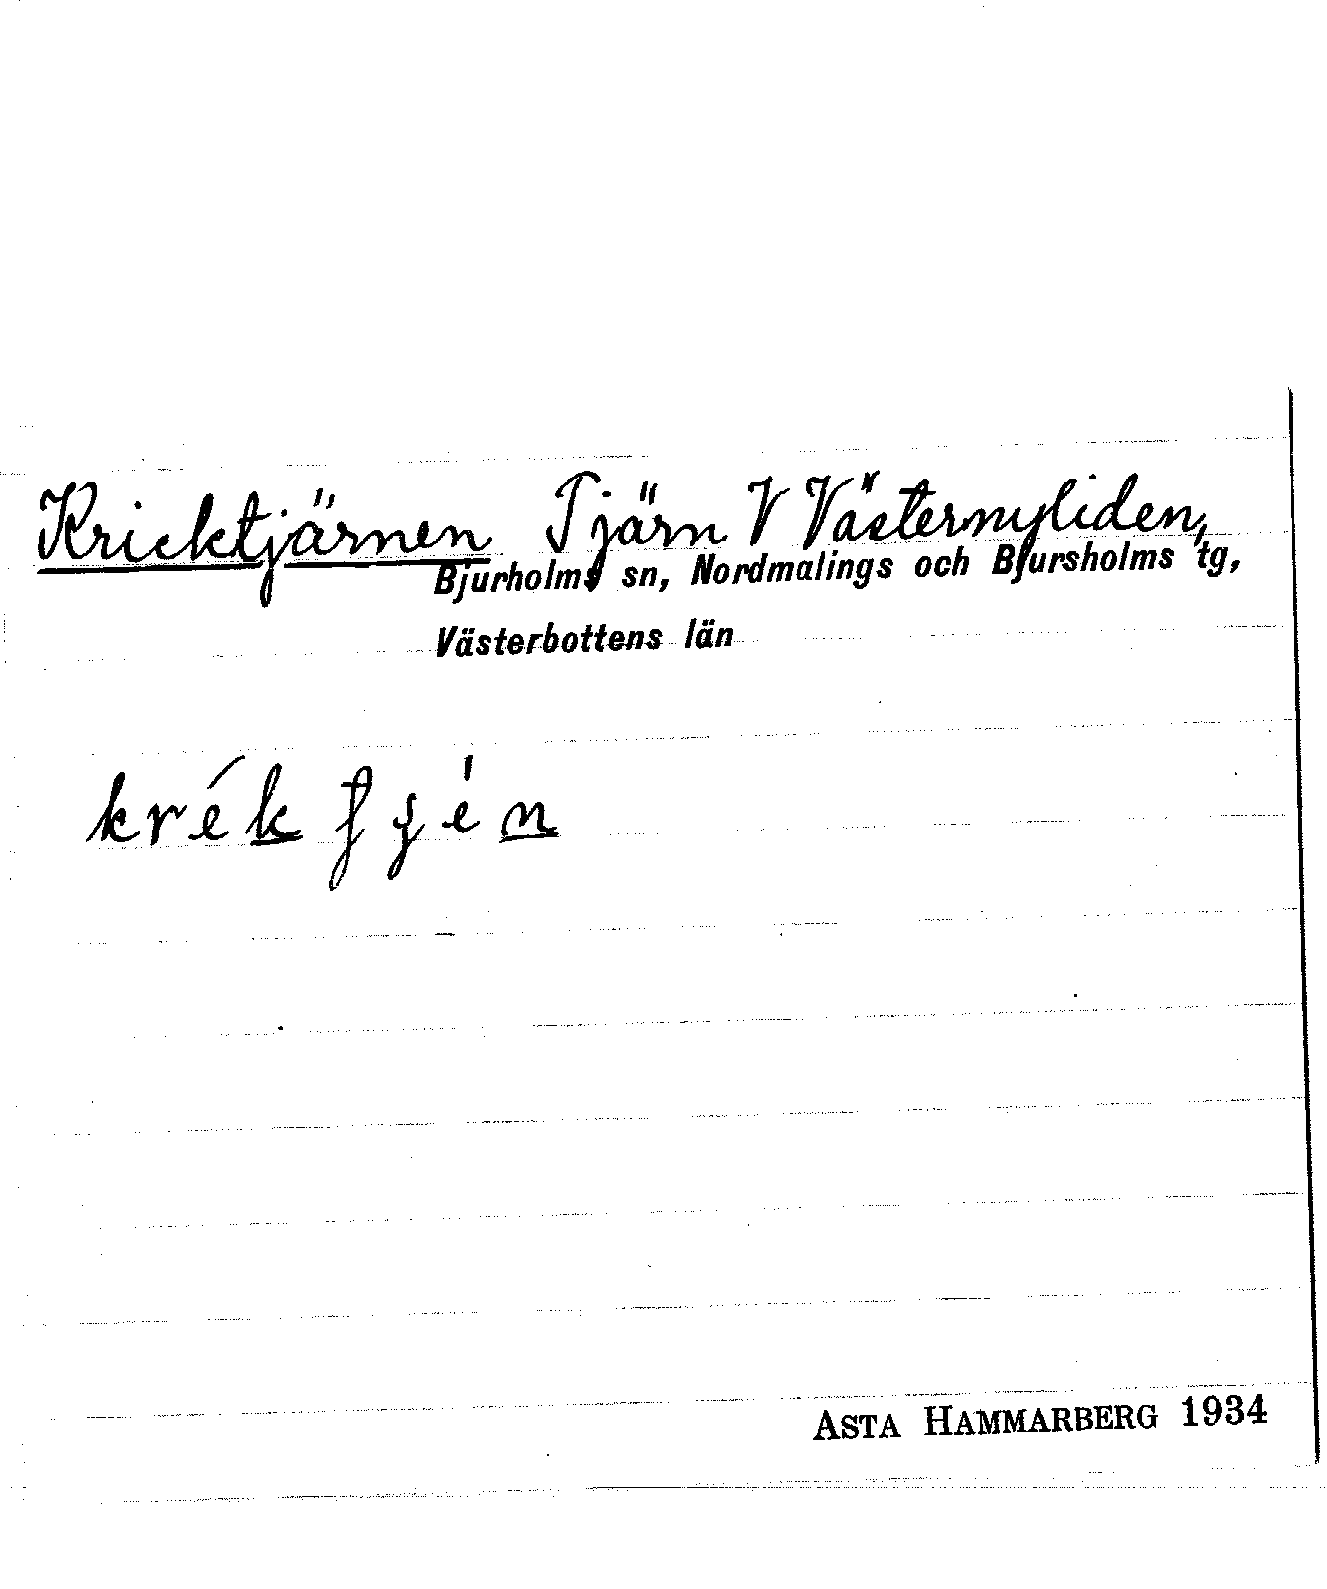 Kricktjärnen Tjärn V Västernyliden,
Bjurholms sn, Nordmalings och Bjursholms tg,
Västerbottens län
ASTA HAMMARBERG 1934